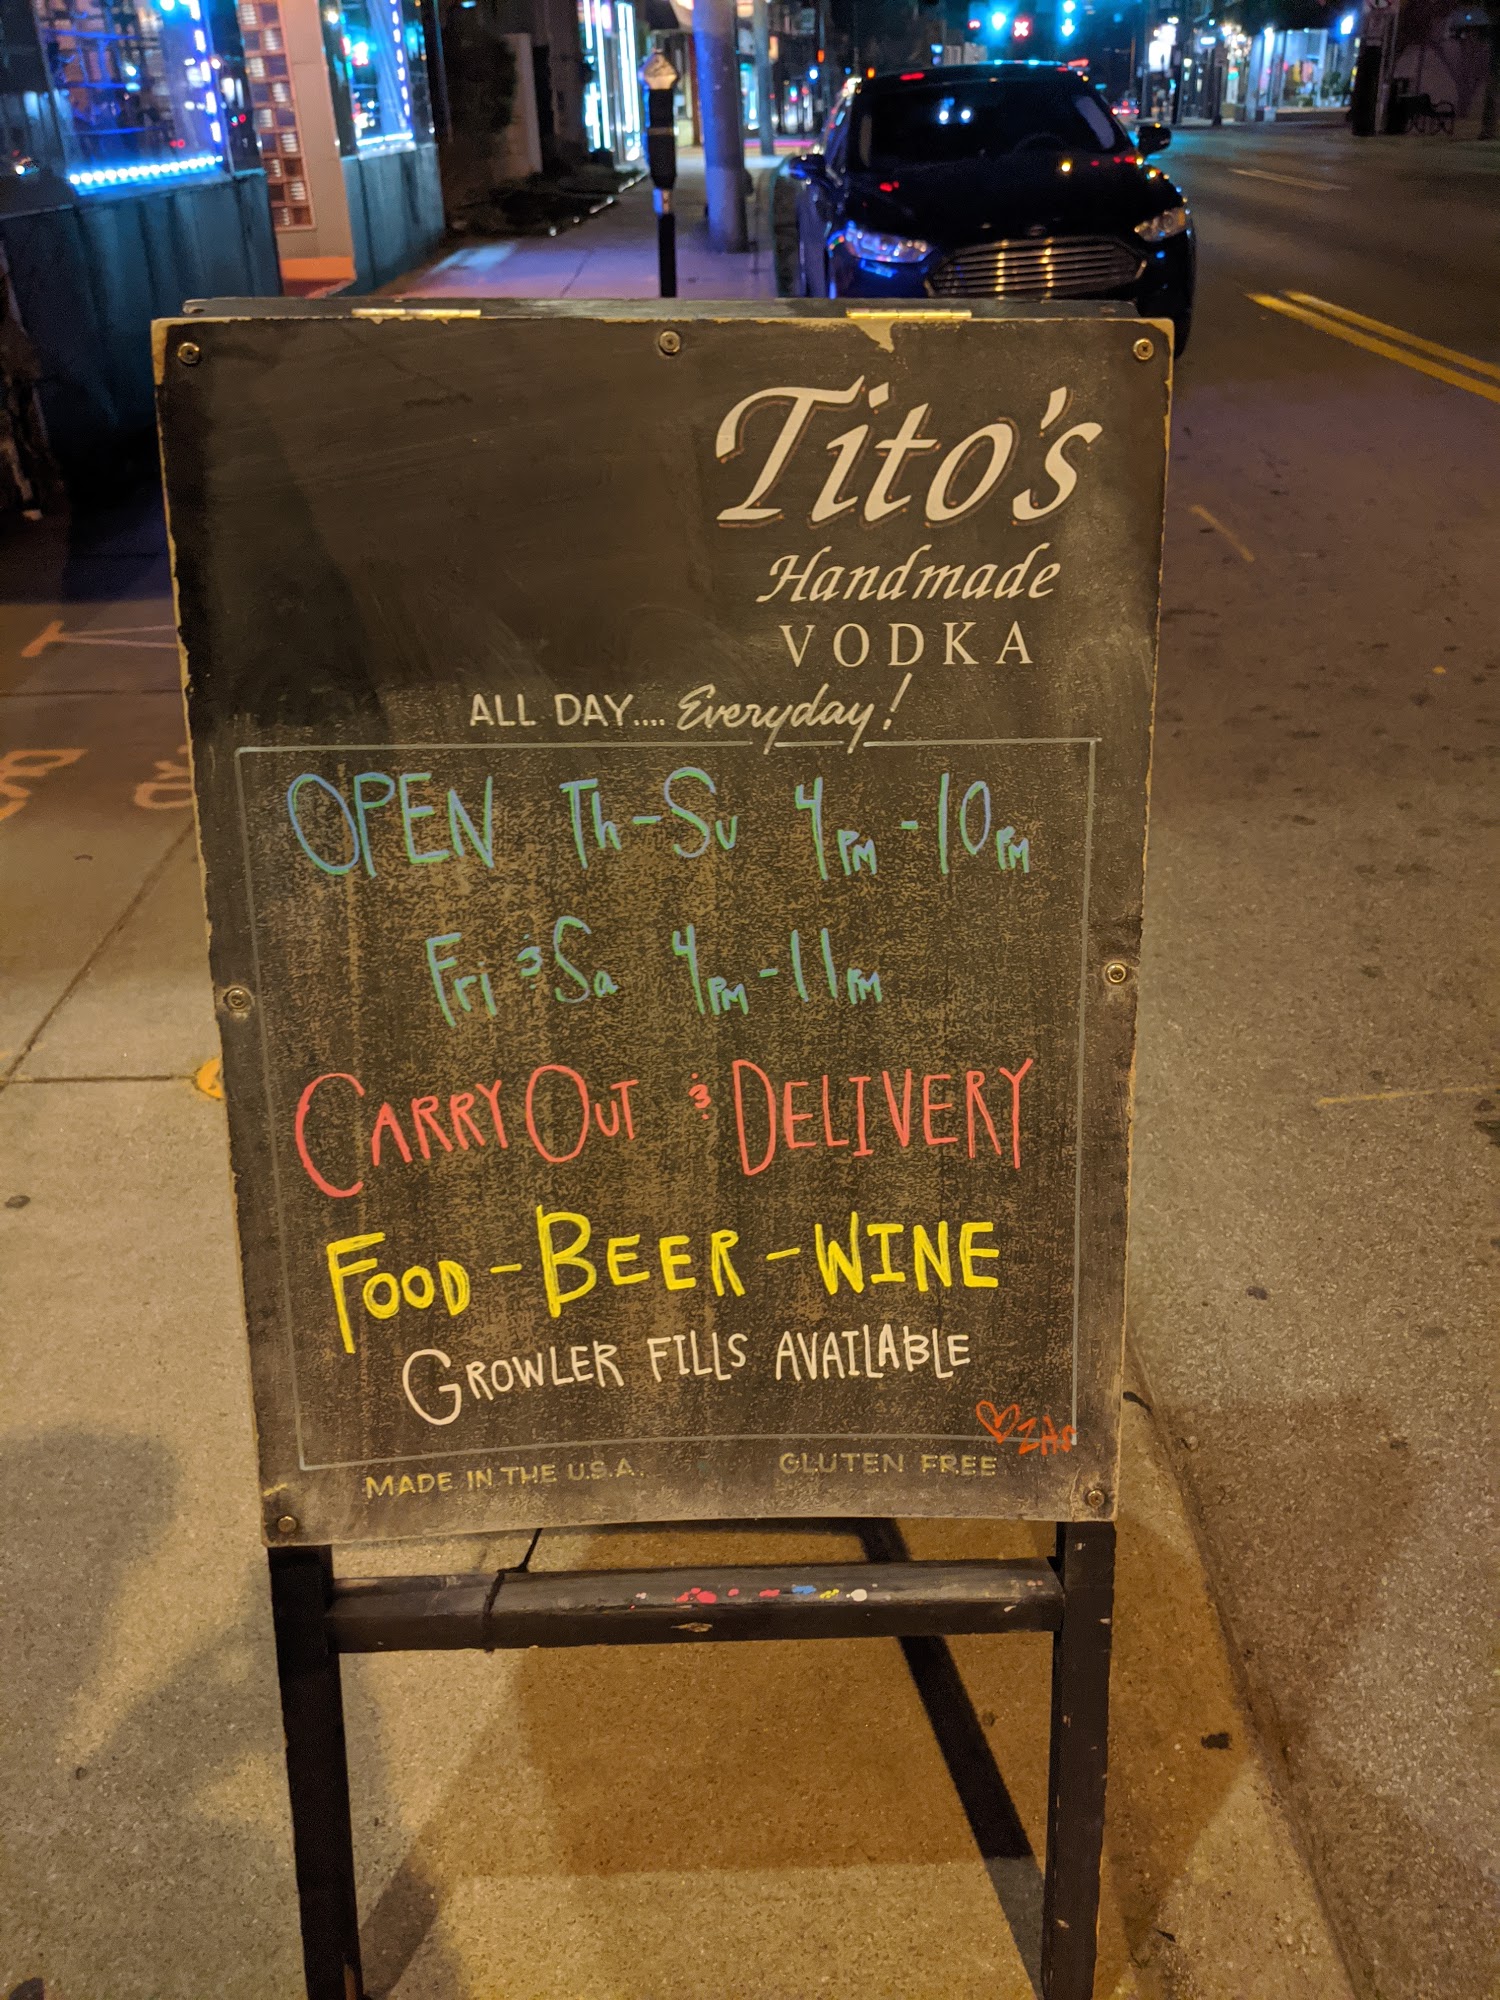 Tito's
Handmade
VODKA
ALL DAY.... Everyday!
OPEN Th-Su 4PM-10PM
Fri & Sa 4PM-11PM
CARRY OUT & DELIVERY
FOOD-BEER-WINE
GROWLER FILLS AVAILABLE
MADE IN THE U.S.A. GLUTEN FREE